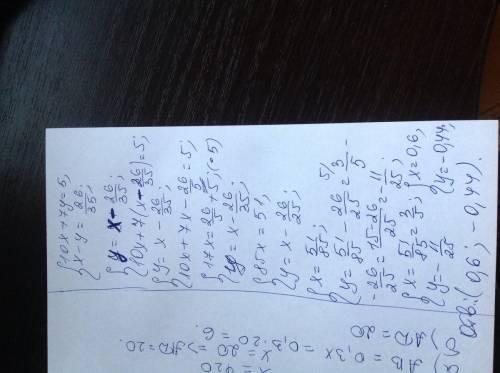 {10x+7y=5,
{x-y=26/35;
{y=x-26/35;
{10x+7(x-26/35)=5;
{y=x-26/35;
{10x+7x-26/5=5;
{17x=26/5+5; (·5)
{y=x-26/35;
{85x=51,
{y=x-26/35;
{x=51/85;
{y=51/85-26/25=3/5-
-26/25=15-26/25=-11/25;
{x=51/85=3/5; {x=0,6,
{y=-11/25 {y=-0,44,
Отв: (0,6; -0,44).
AD=20
AB=0,3x=0,3·20=6.
x=20 => AD=20.